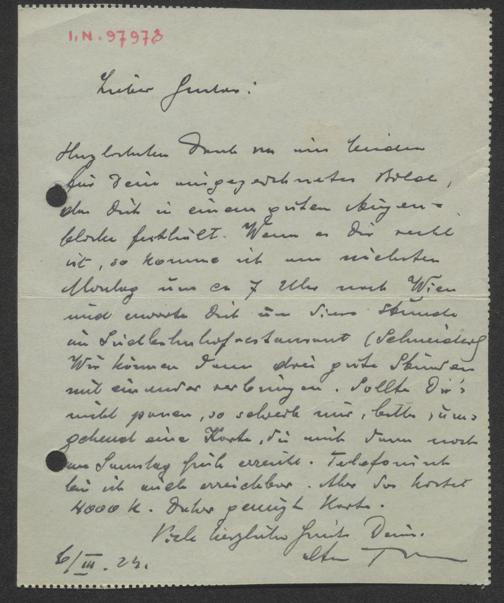 I.N. 97973
Lieber Gustav!
Herzlichsten Dank von uns beiden
für Dein ausgezeichnetes Bild,
das Dich in einem guten Augen-
blicke festhält. Wenn es Dir recht
ist, so komme ich am nächsten
Montag um ca 7 Uhr nach Wien
und erwarte Dich um diese Stunde
im Südbahnhofrestaurant (Schneider)
Wir können dann drei gute Stunden
miteinander verbringen. Sollte Dir's
nicht passen, so schreib mir, bitte, um-
gehend eine Karte, die mich dann noch
am Samstag früh erreicht. Telefonisch
bin ich auch erreichbar. Aber das kostet
4000 K. Daher genügt Karte.
Viele herzliche Grüße Deines
alten
6/III. 24.